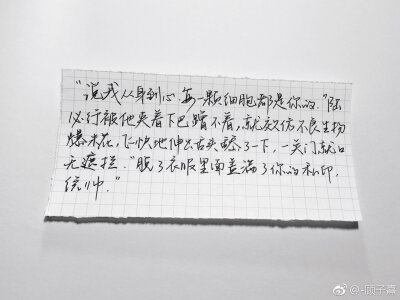 “说我从身到心，每一颗细胞都是你的。”陆
必行被他夹着下巴蹭不着，就效仿不良生物
爆米花，飞快地伸出舌头舔了一下，一关门就口
无遮拦，“脱了衣服里面盖满了你的私印，
统帅。”
@-顾子熹